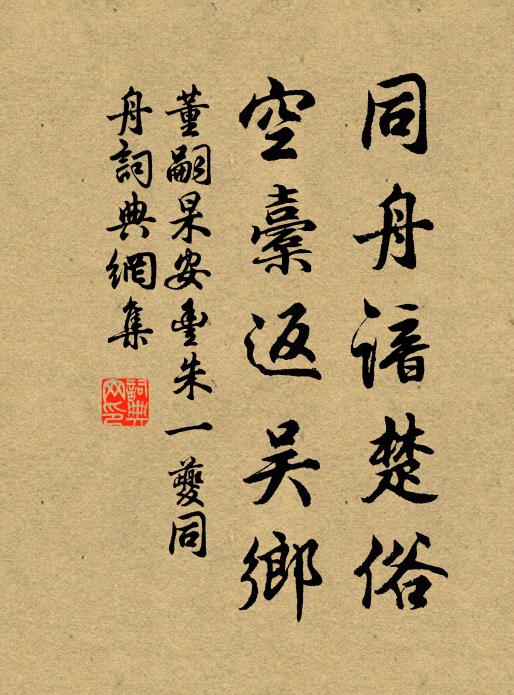 同舟諳楚俗
空囊返吴鄉
董嗣杲安豊朱一夔同
舟詞典網集